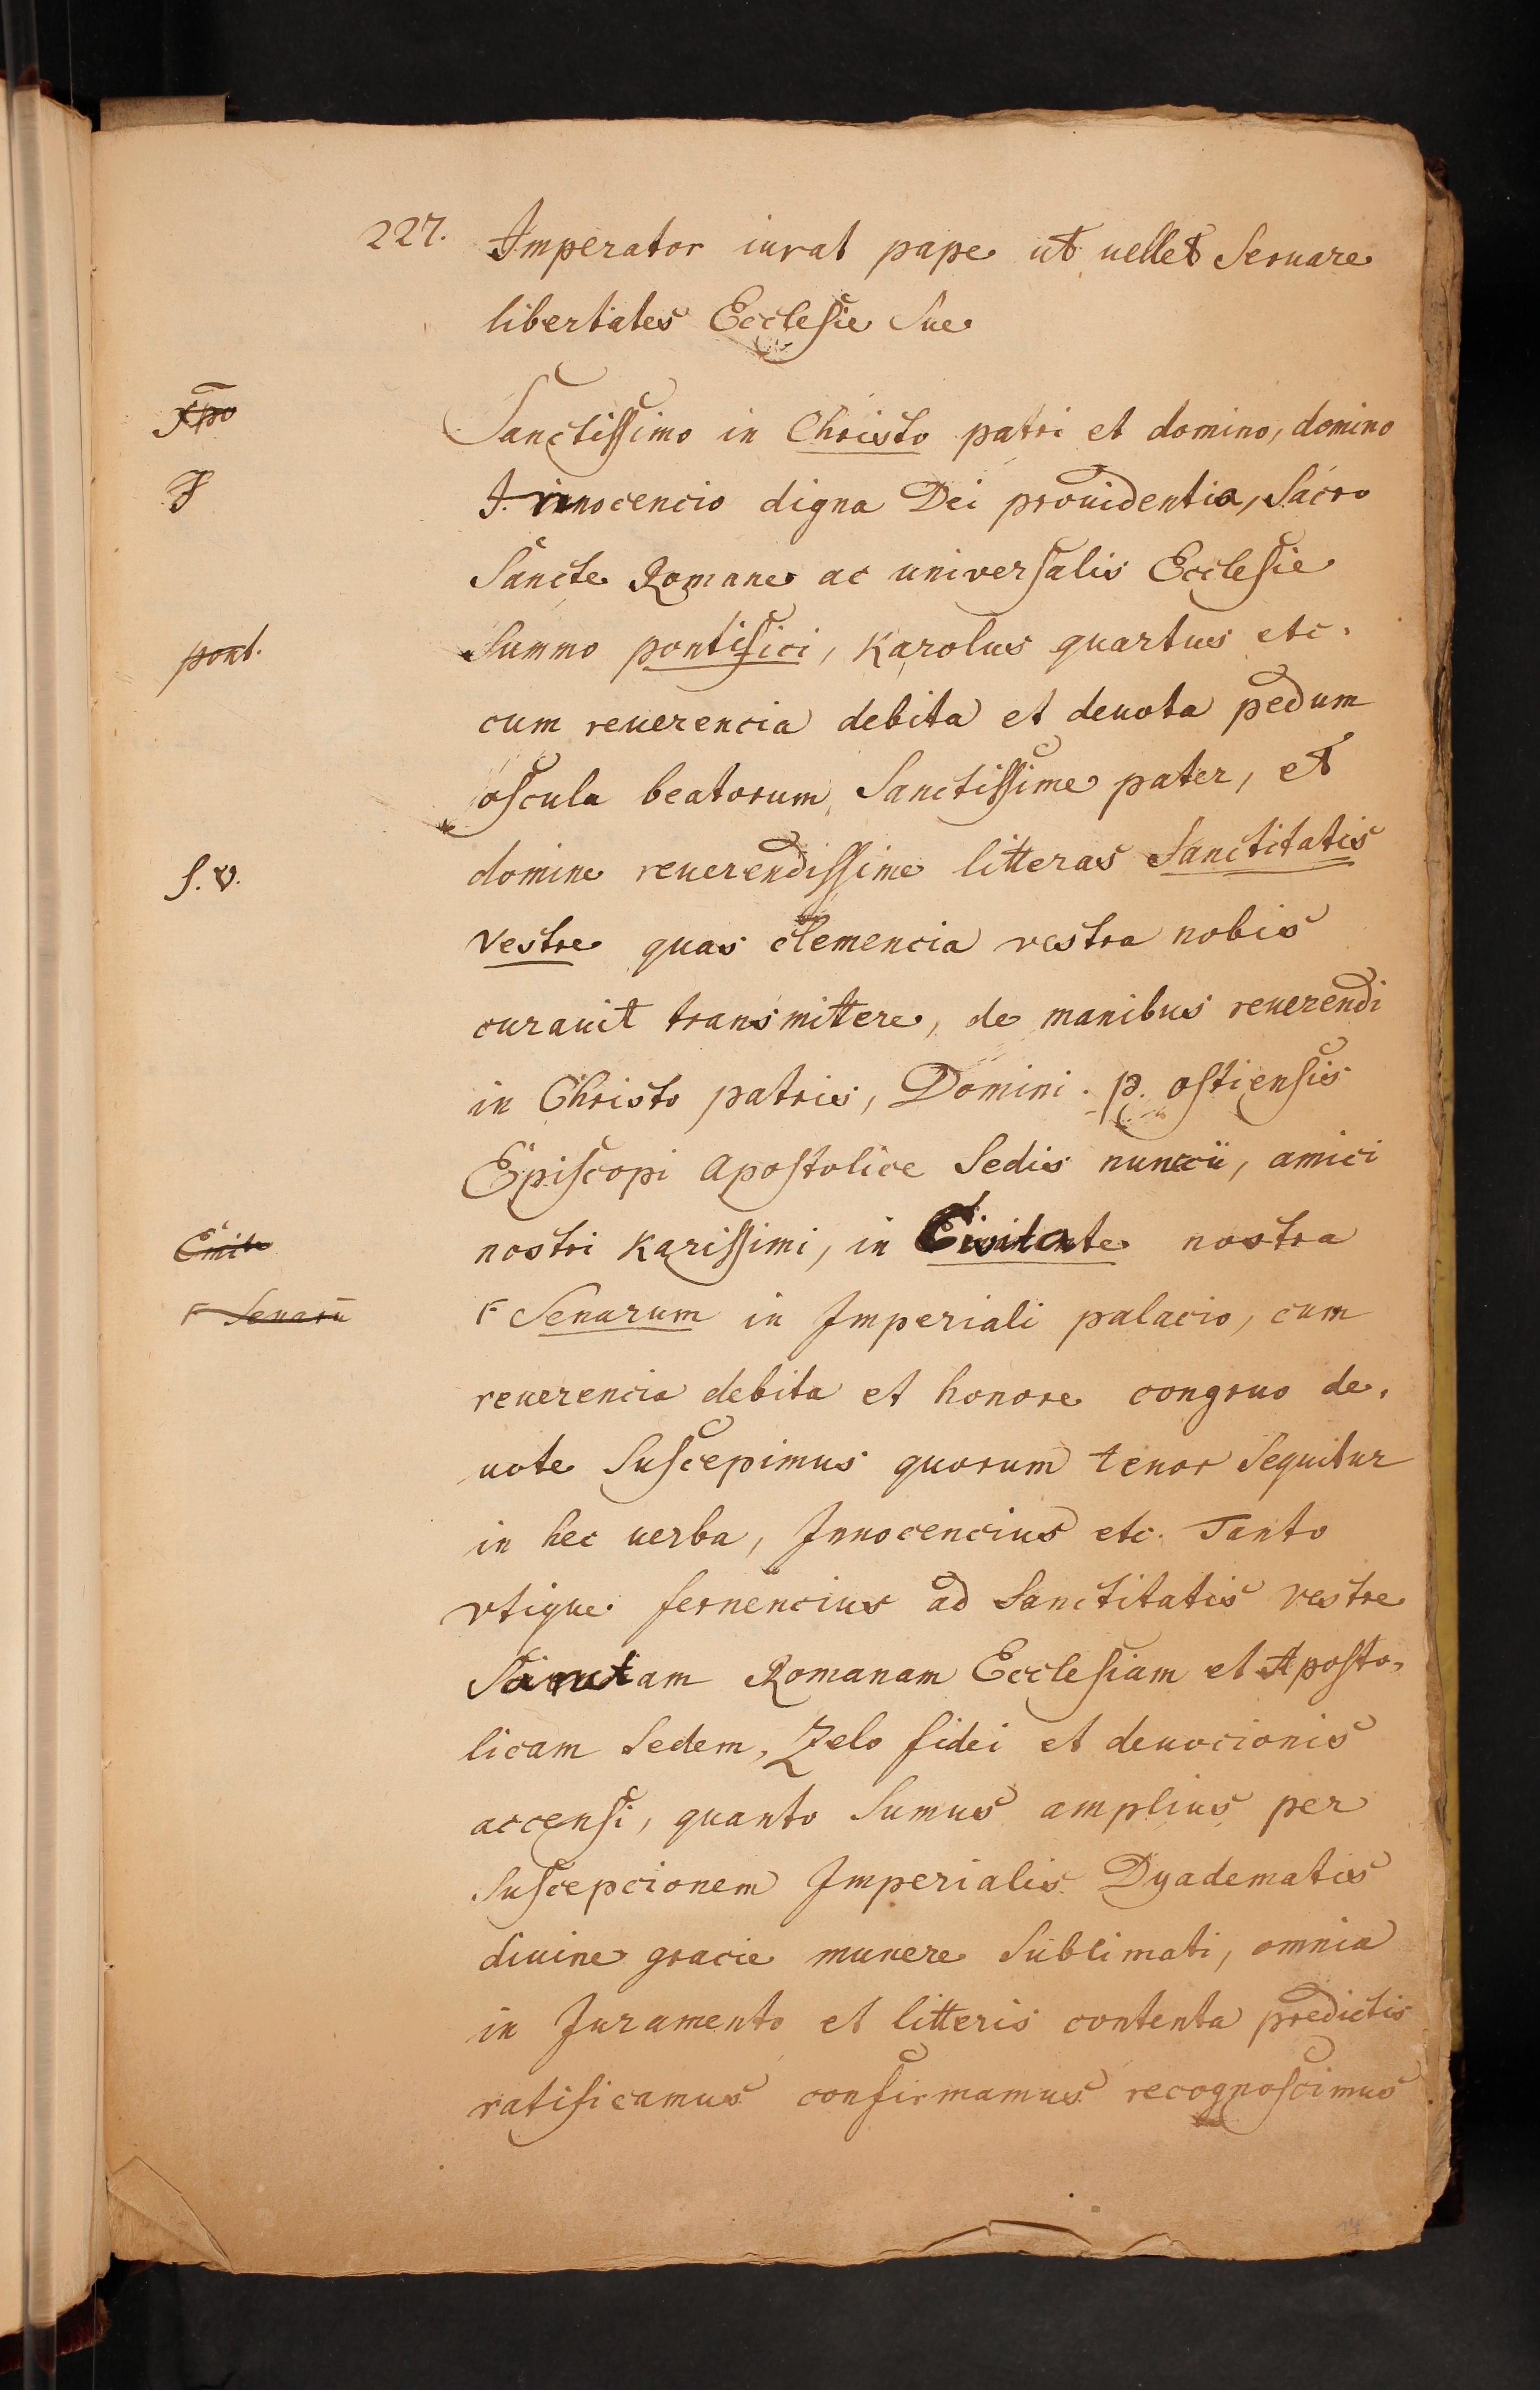 227. Imperator iurat pape ut uellet Seruare
libertates Ecclesie Sue
X̅p̅o̅
Sanctissimo in Christo patri et domino, domino
J
J. innocencio digna Dei prouidentia, Sacro
Sancte Romane ac universalis Ecclesie
pont.
Summo pontifici, Karolus quartus etc.
cum reuerencia debita et deuota pedum
oscula beatorum, Sanctissime pater, et
S. v.
domine reuerendissime litteras Sanctitatis
Vestre quas clemencia vestra nobis
curauit transmittere, de manibus reuerendi
in Christo patris, Domini. p. ostiensis
Episcopi Apostolice Sedis nuncii, amici
nostri Karissimi, in Civitate nostra
F Senarū
F Senarum in Imperiali palacio, cum
reuerencia debita et honore congruo de,
uote Suscepimus quorum tenor Sequitur
in hec uerba, Innocencius etc. Tanto
vtique feruencius ad Sanctitatis vestre
Sanctam Romanam Ecclesiam et Aposto,
licam Sedem, Zelo fidei et deuocionis
accensi, quanto Sumus amplius per
Suscepcionem Imperialis Dyadematis
diuine gracie munere Sublimati, omnia
in Juramento et litteris contenta predictis
ratificamus confirmamus recognoscimus